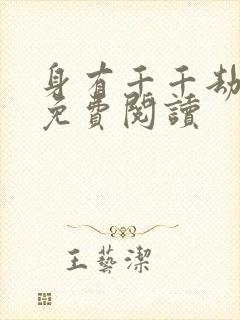 身有千千劫
免費閱讀
王藝潔